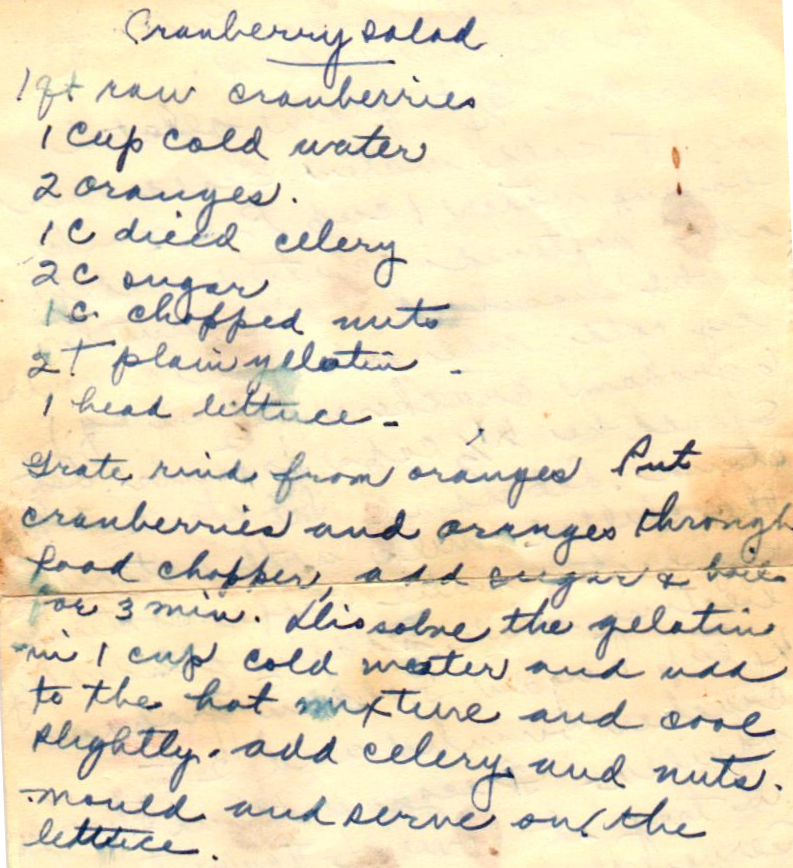 Cranberry salad
1 qt raw cranberries
1 cup cold water
2 oranges.
1 C diced celery
2 C sugar
1 C. chopped nuts
2 T plain gelatin -
1 head lettuce -
Grate rind from oranges Put
cranberries and oranges through
food chopper, add sugar & boil
for 3 min. Dissolve the gelatin
in 1 cup cold water and add
to the hot mixture and cool
slightly. add celery and nuts.
mould and serve on the
lettuce.